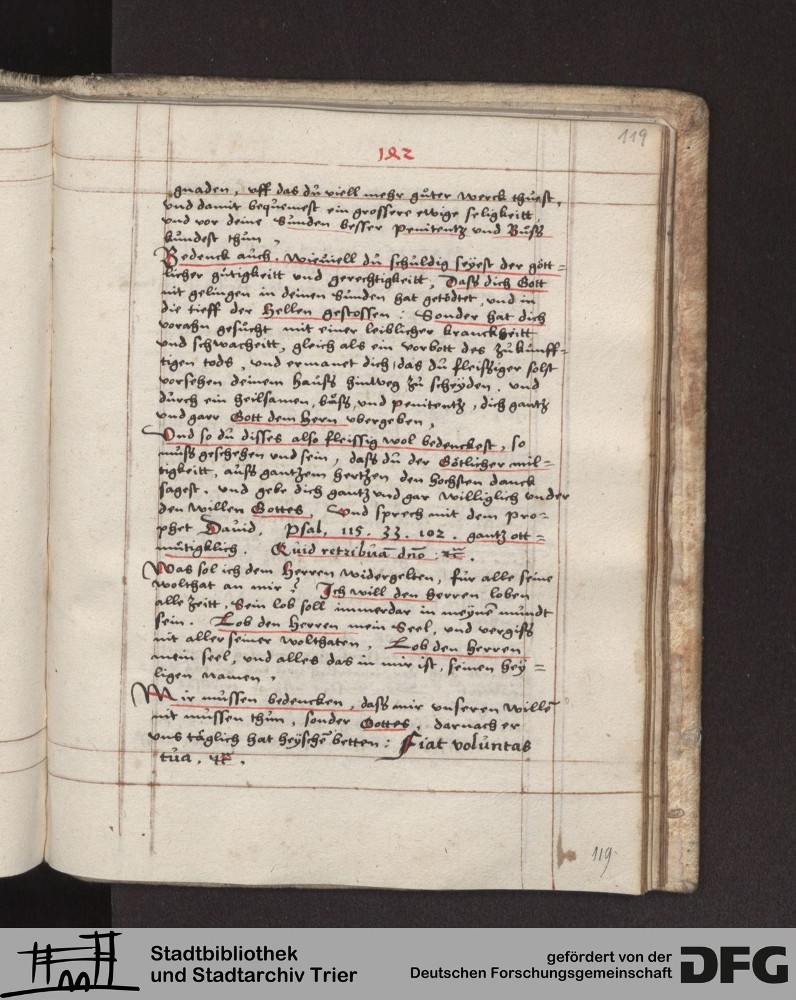 119
182
gnaden, uff das du viell mehr guter werck thuest,
und damit bequemest ein grossere ewige seligkeitt,
und vor deine Sunden besser penitentz und Buß
kundest thun,
Bedenck auch, wieviell du schuldig seyest der gött=
licher gutigkeitt und gerechtigkeitt, Daß dich Gott
nit gelingen in deinen Sunden hat getödtet, und in
die tieff der Hellen gestossen: Sonder hat dich
vorahn gesucht mit einer leiblicher kranckheitt
und schwacheitt, gleich als ein vorbott des zukunff=
tigen tods, und ermanet dich, das du fleissiger solst
vorsehen deinem hauß hinweg zu scheyden. und
durch ein heilsamen, büß, und penitentz, dich gantz
und garr Gott dem Hern ubergeben,
Und so du disses also fleissig wol bedenckest, so
muß geschehen und sein, daß du der Götlicher mil=
tigkeitt, auß gantzem hertzen den hochsten danck
sagest, und gebe dich gantz und gar williglich under
den willen Gottes, Und sprech mit dem Pro=
phet David, Psal, 115. 33. 102. gantz ott=
mutigklich. Quid retribuā dño: ꝛc.
Was sol ich dem Herren widergelten, für alle seine
wolthat an mir? Ich will den herren loben
alle zeitt, Sein lob soll immerdar in meynē mundt
sein. Lob den Herren mein Seel, und vergiß
nit aller seiner wolthaten, Lob den Herren
mein seel, und alles das in mir ist, seinen hey=
ligen namen,
Mir mussen bedencken, daß mir unseren willē
nit mussen thun, sonder Gottes, darnach er
uns täglich hat heyschē betten: Fiat voluntas
tua, ꝛc.
119
Stadtbibliothek
und Stadtarchiv Trier
gefördert von der
Deutschen Forschungsgemeinschaft
DFG